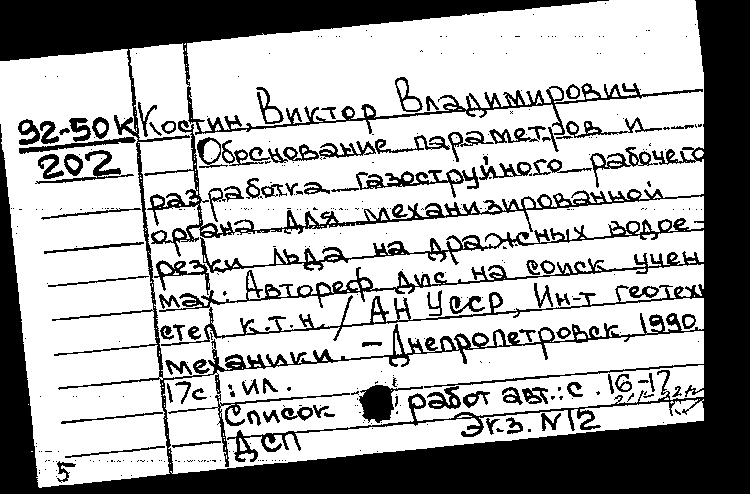 92-50К Костин, Виктор Владимирович
202 Обоснование параметров и
разработка газоструйного рабочего
органа для механизированной
резки льда на дражных водое-
мах: Автореф дис. на соиск учен
степ к.т.н. / АН УССР, Ин-т геотехн
механики. – Днепропетровск, 1990.
17с : ил.
Список работ авт.: с. 16-17
ДСП Экз. N12
5